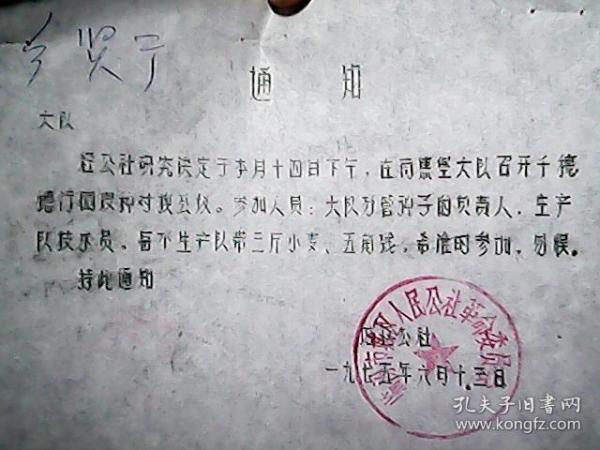 通知
大队
经公社研究决定于本月十四日下午，在向集堡大队召开千穗
穗行圃良种对换会议。参加人员：大队分管种子的负责人，生产
队技术员，每个生产队带三斤小麦、五角钱，希准时参加，勿误。
特此通知
公社
一九七五年六月十三日
人民公社革命委员
孔夫子旧书网
www.kongfz.com